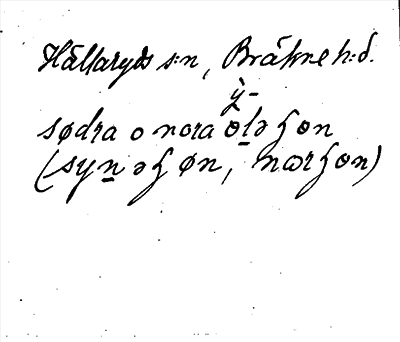 Hällaryds s:n, Bräkne h:d.
ỳ-
sødra o nora ølə ʃøn
(syn̠əʃøn, nærʃøn)